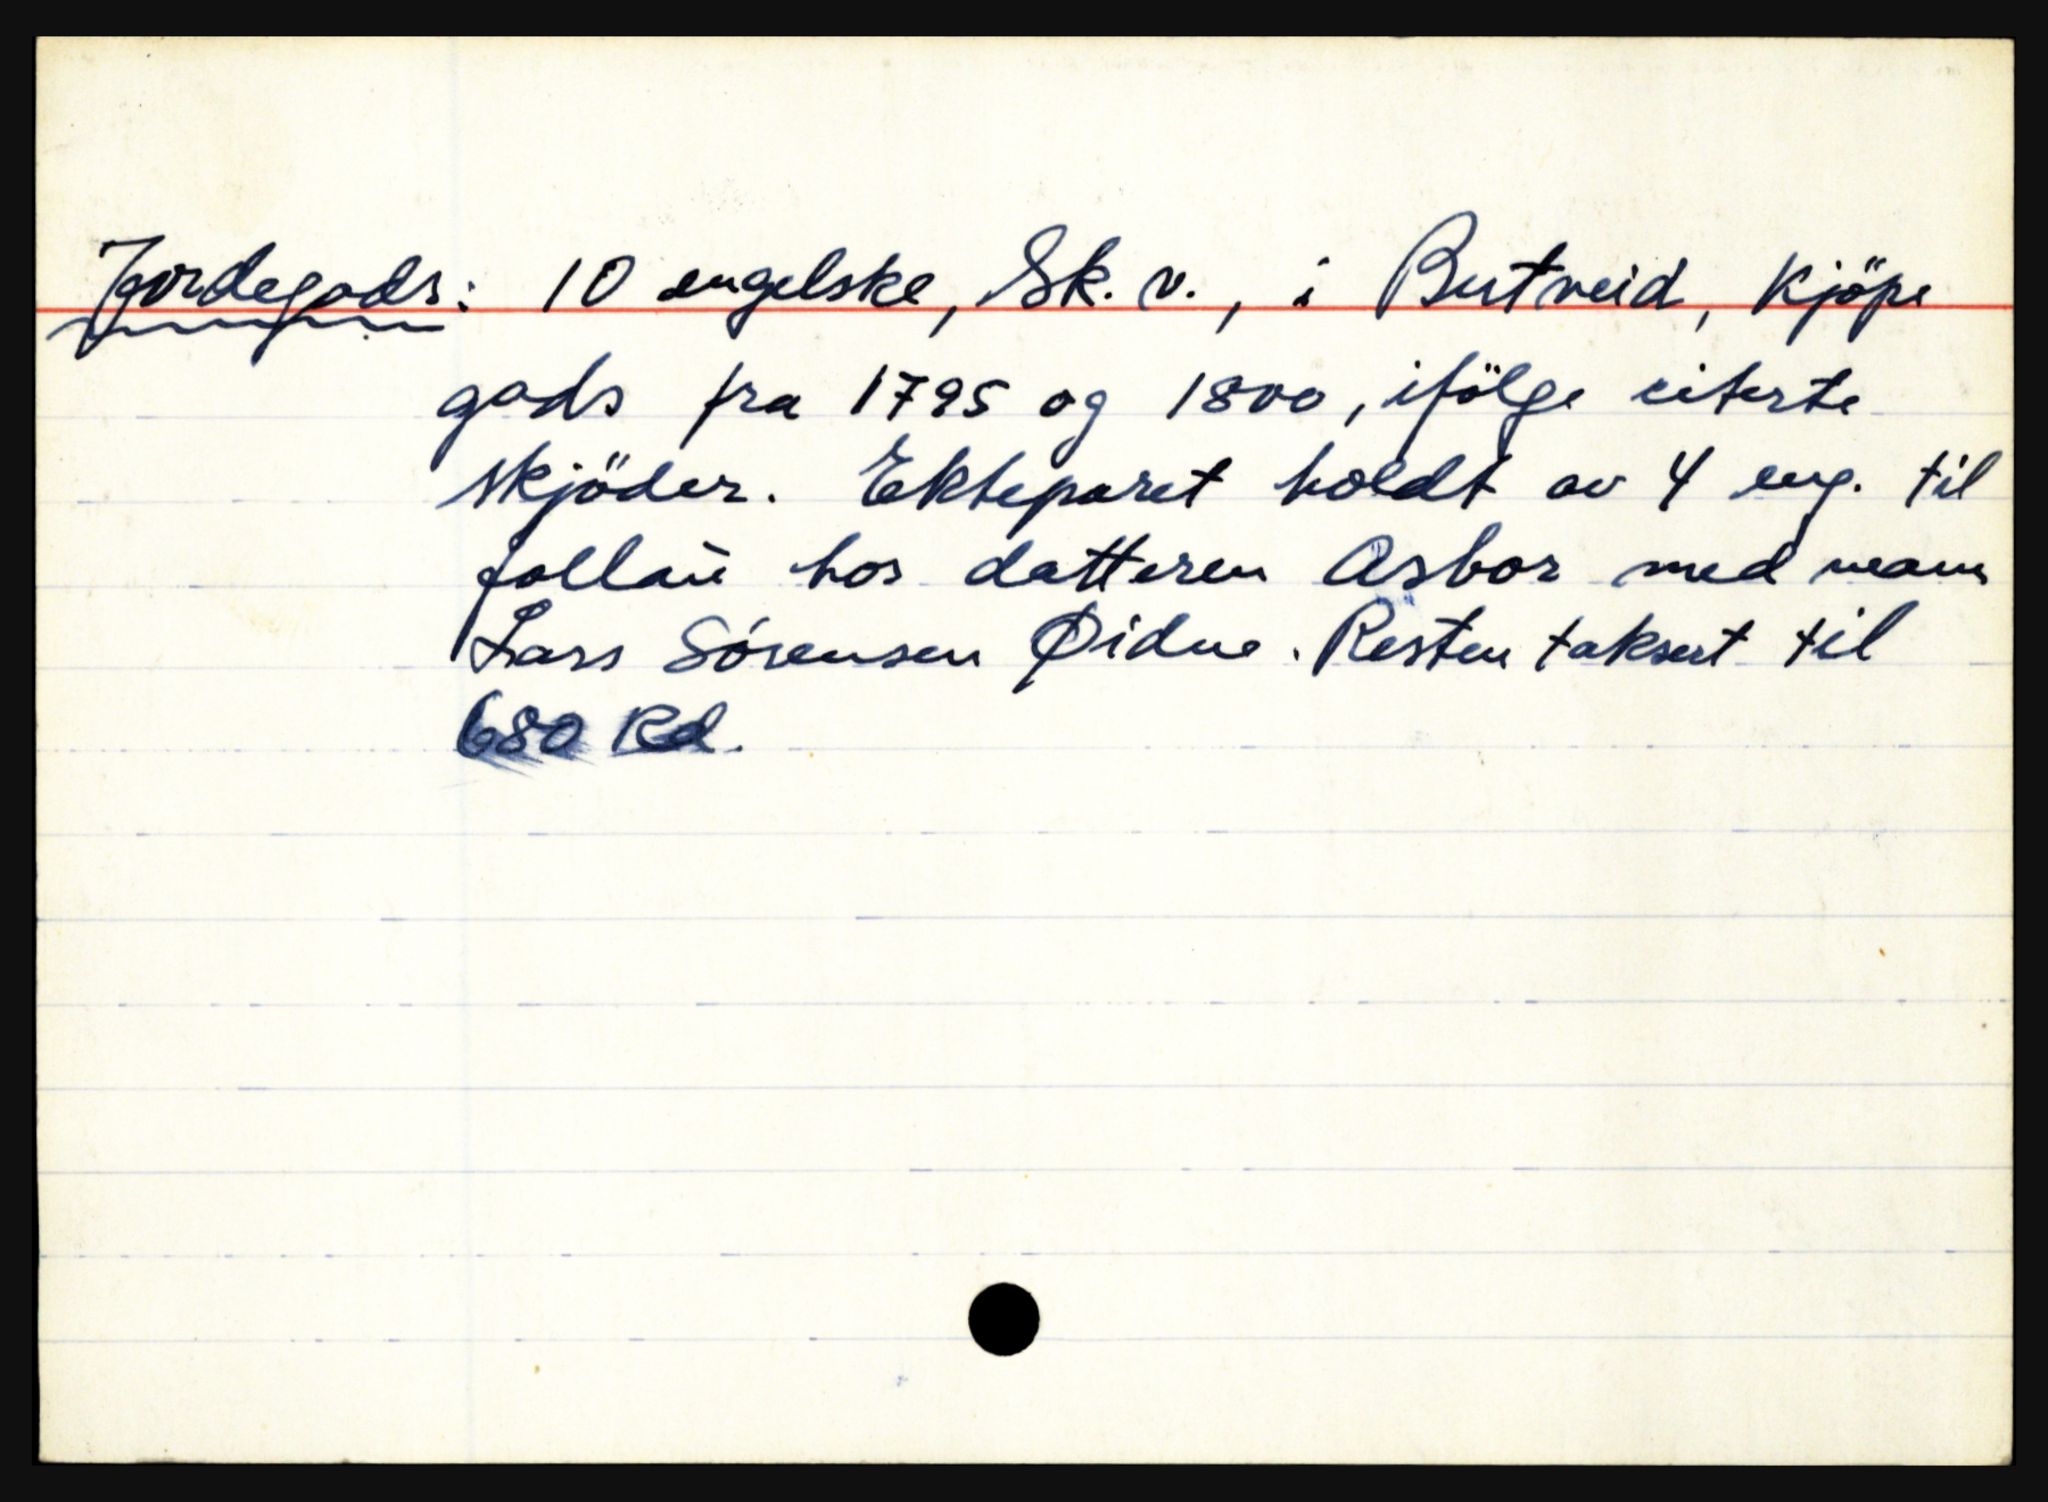 Jordegods: 10 engelske, Sk. v., i Butveid, kjöpe
gods fra 1795 og 1800, ifölge citerte
skjöder. Ekteparet holdt av 4 eng. til
follau hos datteren Asbor med mann
Lars Sörensen Øidne. Resten taksert til
680 Rd.